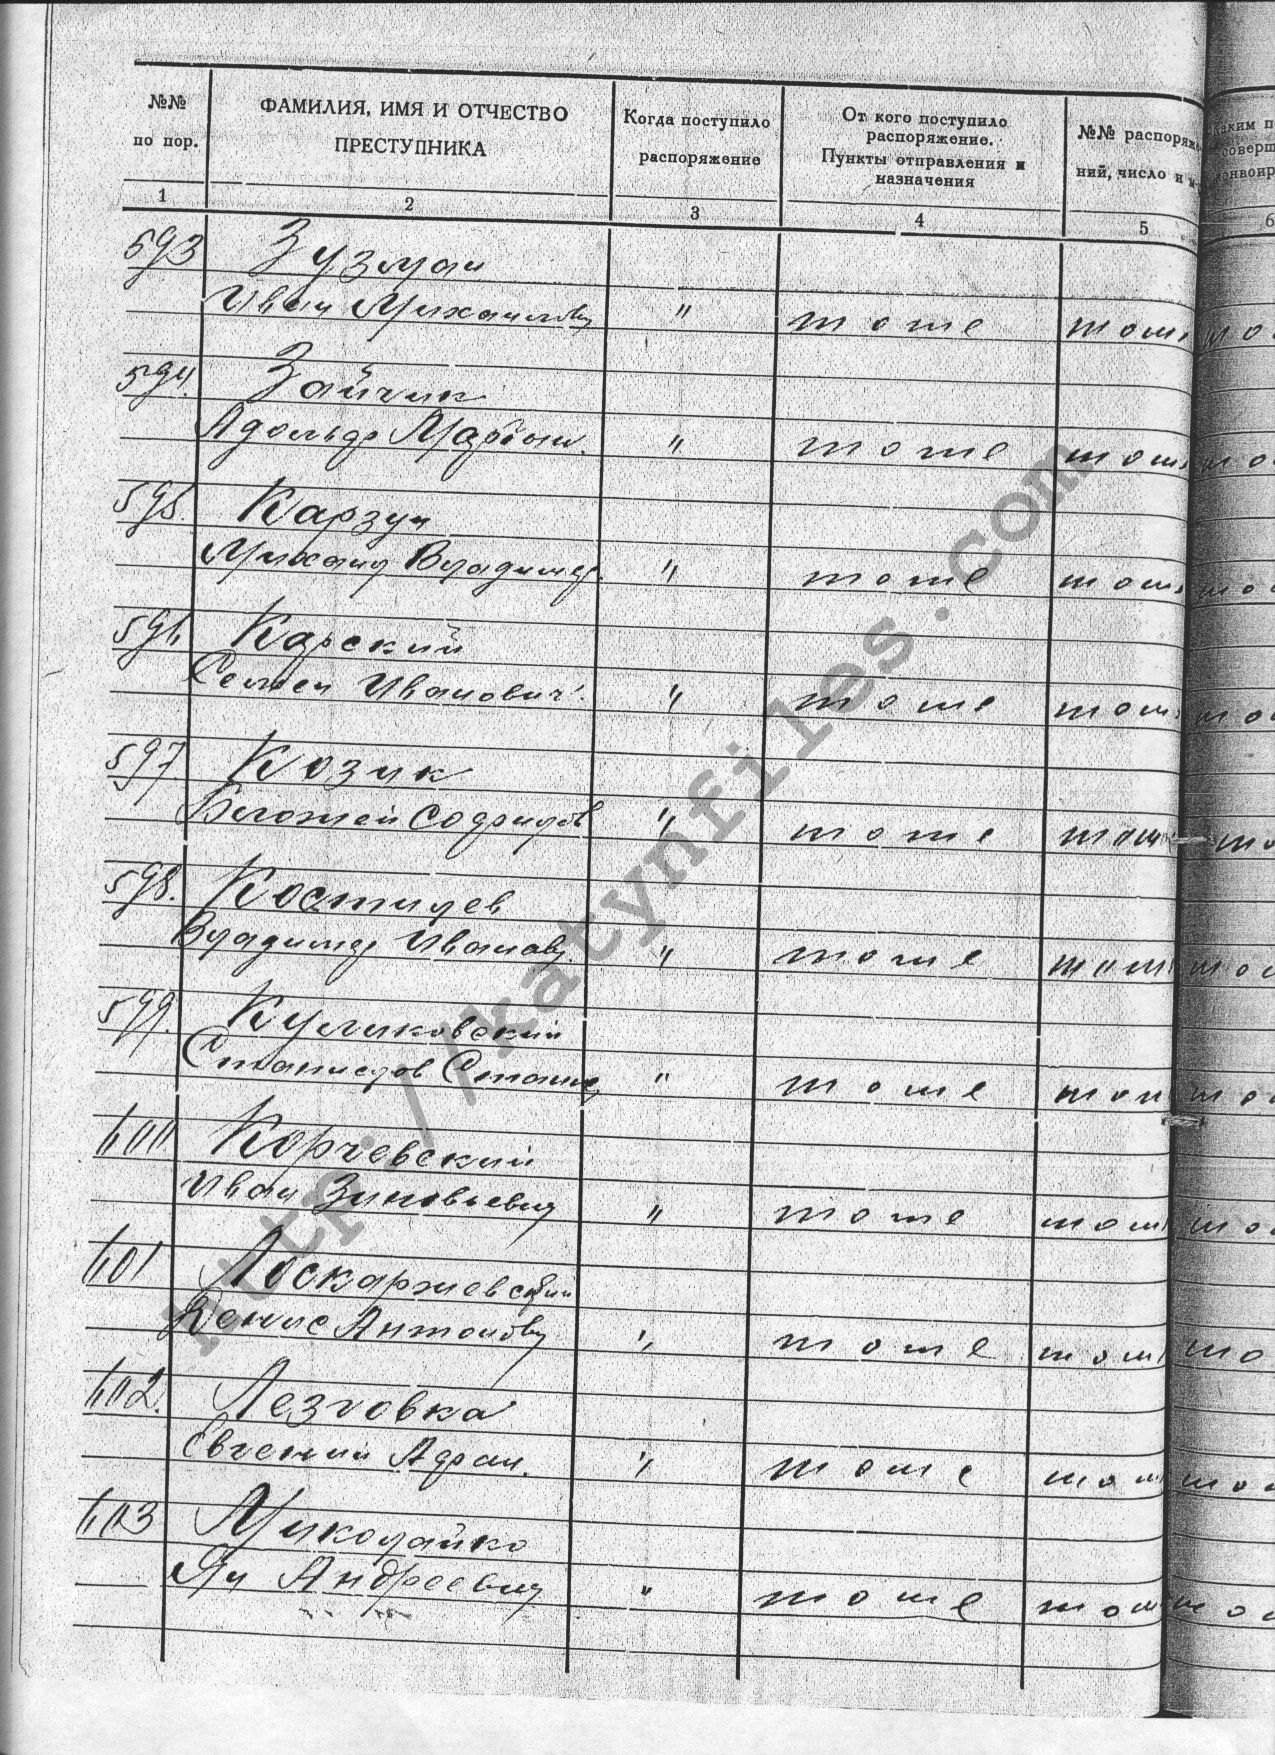 №№ по пор.
ФАМИЛИЯ, ИМЯ И ОТЧЕСТВО
ПРЕСТУПНИКА
Когда поступило
распоряжение
От кого поступило
распоряжение.
Пункты отправления и
назначения
№№ распоряже
ний, число и м
Каким п
соверш
конвоир
1 2 3 4 5 6
593 Зузман
Иван Михайлович " тоже тоже то
594. Зайчик
Адольф Мариан. " тоже тоже то
595. Карзун
Михаил Владимир. " тоже тоже то
596. Карский
Семен Иванович. " тоже тоже то
597 Козик
" тоже тоже то
598. Костилев
Владимир Иванов. " тоже тоже то
599. Куликовский
Станислав Станис " тоже тоже то
600 Корчевский
Иван Зиновьевич " тоже тоже то
601 Лоскаржевский
Денис Антонович " тоже тоже то
602. Лезговка
Евгений Адам. " тоже тоже то
603 Миколайко
Ян Андреевич " тоже тоже то
http://katynfiles.com